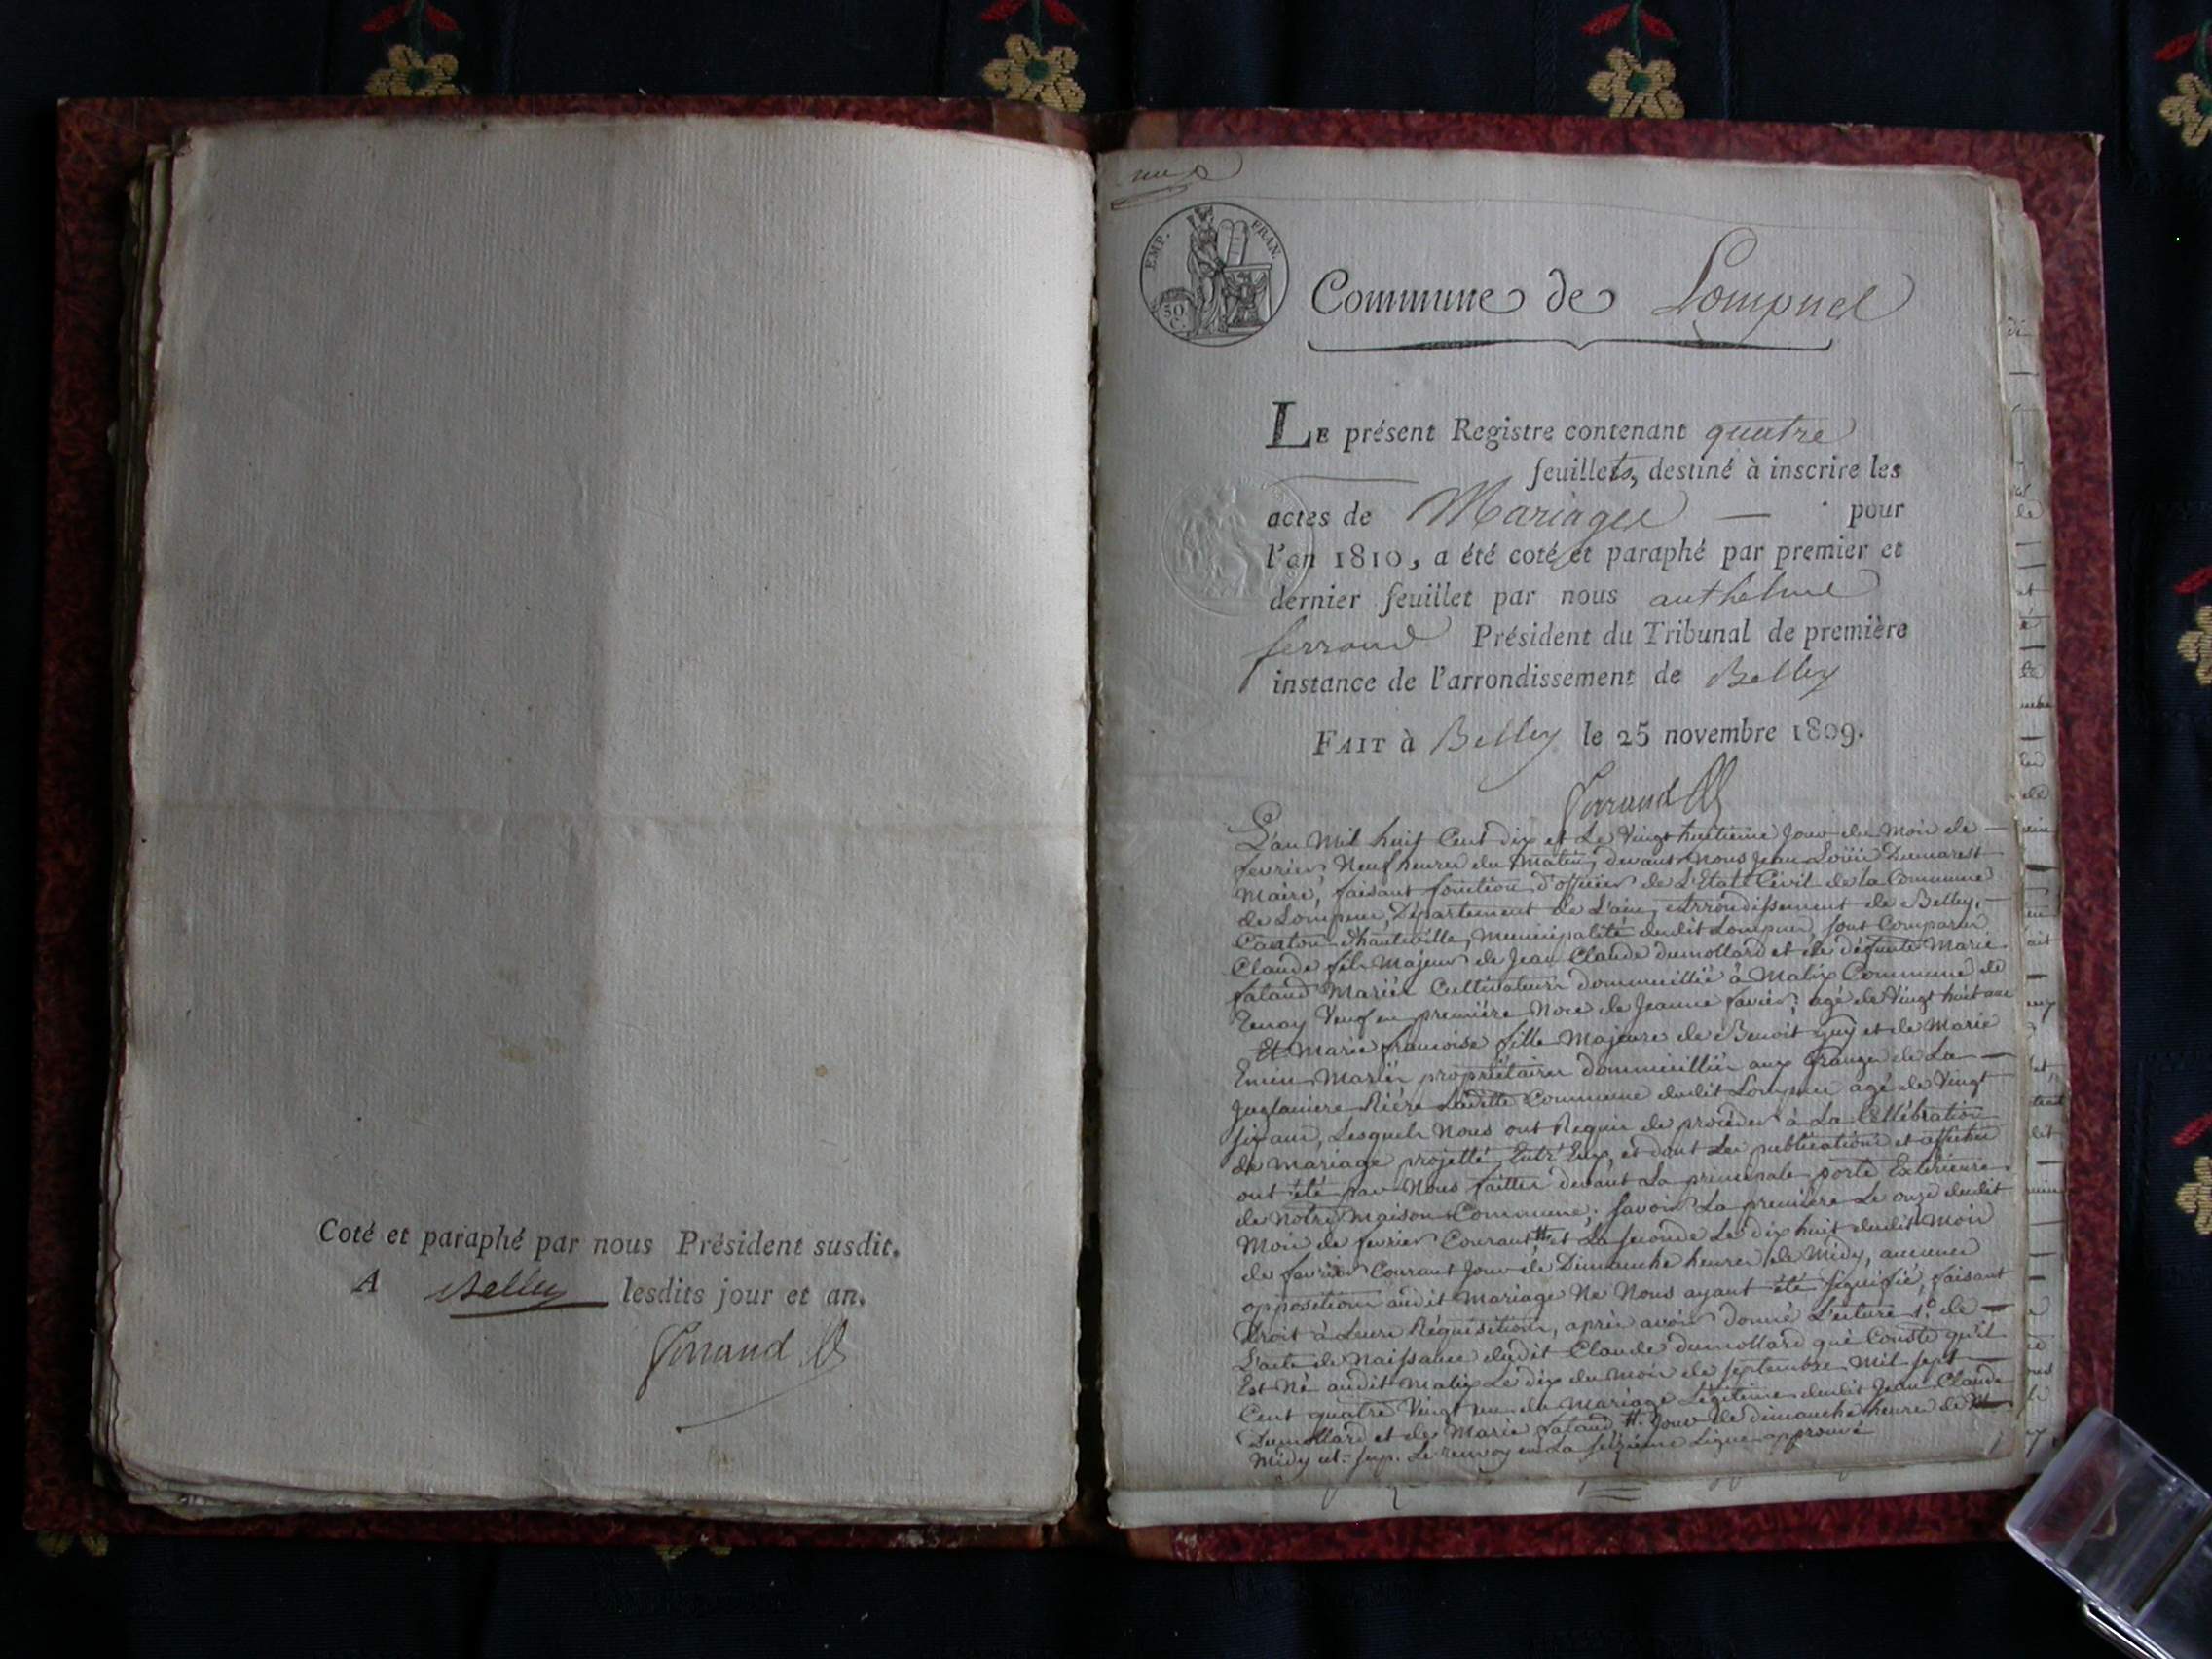 Coté et paraphé par nous Président susdit.
A Belley lesdits jour et an.
Ferrand
EMP. FRAN.
50 C.
Commune de Lompnes
LE présent Registre contenant quatre
feuillets, destiné à inscrire les
actes de Mariages — pour
l'an 1810, a été coté et paraphé par premier et
dernier feuillet par nous anthelme
ferrand Président du Tribunal de première
instance de l'arrondissement de Belley
FAIT à Belley le 25 novembre 1809.
Ferrand
L'an Mil huit Cent dix et Le Vingt huitieme Jour du Mois de —
fevrier, Neuf heures du Matin, devant Nous Jean Loüis Dumarest
Maire, faisant fonction d'officier de L'Etat Civil de la Commune
de Lompnes, Département de L'ain, arrondissement de Belley, —
Canton d'hauteville, Municipalité dudit Lompnes, sont Comparus
Claude fils Majeur de Jean Claude dumollard et de défunte Marie
falaud Mariés Cultivateurs dommicilliés à Malix Commune de
Tenay Veuf en première Noce de Jeanne favier, agé de Vingt huit ans
Et Marie francoise fille Majeure de Benoit guy et de Marie
Emin Mariés propriétaires dommicilliés aux Granges de La —
Juglaniere Riére Ladette Commune dudit Lompnes agé de Vingt
six ans, Lesquels Nous ont Requis de procéder à La Cellébration
de Mariage projetté Entr'Eux, et dont Les publications et affiches
ont été par Nous faittes devant La principale porte Exterieure
de Notre Maison Commune; savoir La première Le onze dudit
Mois de fevrier Courant # et La seconde Le dix huit dudit Mois
de fevrier Courant Jour de Dimanche heures de Midy, aucunes
oppositions audit Mariage Ne Nous ayant été signifié, faisant
Droit à Leurs Réquisitions, après avoir donné L'ecture 1.º de —
L'acte de Naissance dudit Claude dumollard qui Conste qu'il
Est Né audit Malix Le dix du Mois de septembre Mil sept —
Cent quatre Vingt un du Mariage Légitime dudit Jean Claude
Dumollard et de Marie falaud #. Jour de dimanche heures de M
Midy ut. sup. Le renvoy en La seizieme Ligne approuvé